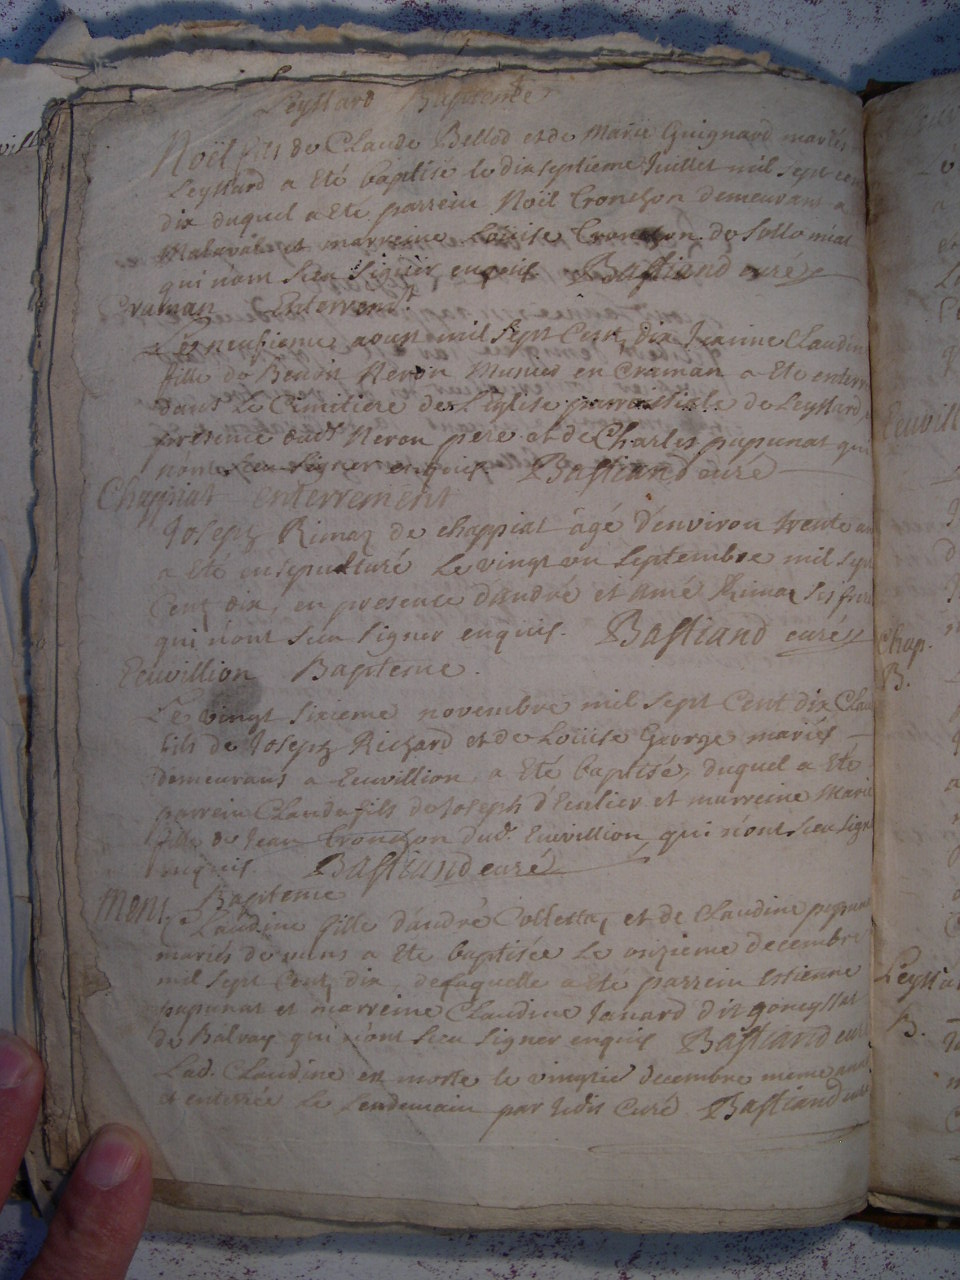 Leyssard Bapteme
Noël fils de Claude Bellod et de Marie Guignard mariés
Leyssard a eté baptisé le dixseptieme Juillet mil sept cen
dix duquel a eté parrein Noël Tronchon demeurant a
Malaval et marreine Loüise Tronchon de Sollomiat
qui n'ont sceu signer enquis Bastiand curé
Craman Enterrem.t
Le neufieme aoust mil sept cent dix Jeanne Claudin
fille de Benoit Neron Musnier en Craman a eté enterré
dans le Cimitiere de l'Eglise parrossiale de Leyssard
presence dud. Neron pere et de Charles papunat qui
n'ont sceu signer enquis. Bastiand curé
Chappiat enterrement
Joseph Rimaz de chappiat âgé d'environ trente an
a eté ensepulturé le vingt un septembre mil sept
Cent dix, en presence d'andré et amé Rimaz ses frere
qui n'ont sceu signer enquis. Bastiand curé
Eeuvillion Bapteme.
Le vingt sixieme novembre mil sept Cent dix Clau
fils de Joseph Richard et de Loüise George mariés
demeurans a Eeuvillion, a eté baptisé, duquel a eté
parrein Claude fils de Joseph d'Eculier et marreine Marie
fille de Jean Tronchon dud. Euvillion, qui n'ont sceu signe
enquis. Bastiand curé
Mens Bapteme
Claudine fille d'andré Collettaz et de Claudine papuna
mariés de mens a eté baptisée le onzieme decembre
mil sept Cent dix, de laquelle a eté parrein Estienne
papunat et marreine Claudine Janard dit
de Balvay qui n'ont sceu signer enquis Bastiand curé
Lad. Claudine est morte le decembre meme anné
et enterrée le lendemain par Curé Bastiand curé
Eeuvill
Chap.
B.
Leyssa
B.